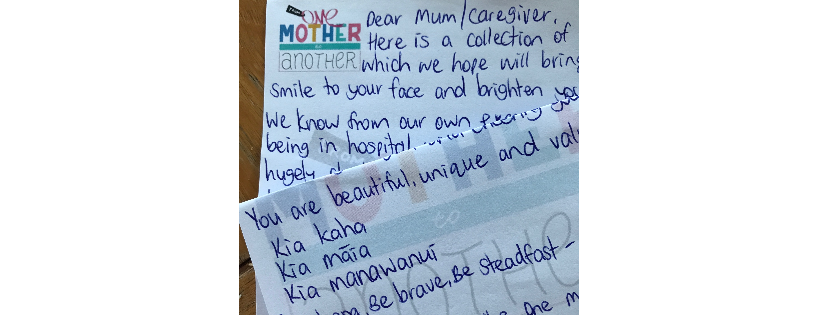 From
ONE
MOTHER
to
another
Dear Mum/Caregiver,
Here is a collection of
which we hope will bring
smile to your face and brighten
We know from our own
being in hospital
hugely
You are beautiful, unique and
Kia kaha
Kia māia
Kia manawanui
Be brave, Be steadfast -
to
One